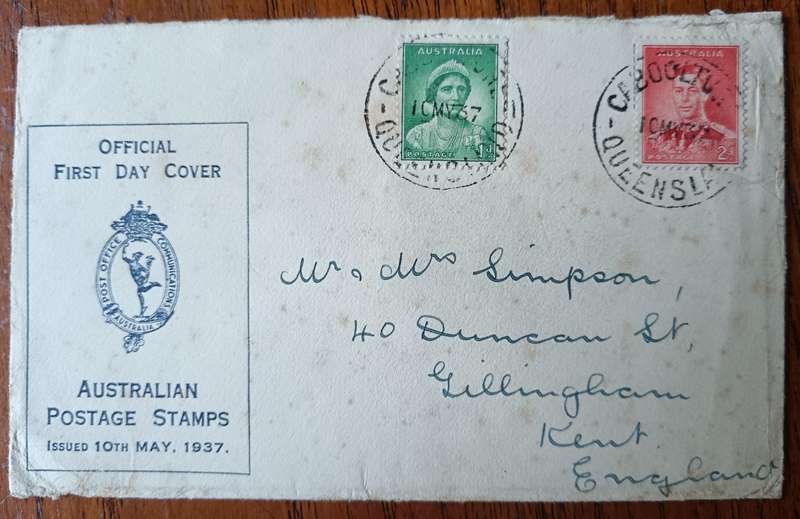 OFFICIAL
FIRST DAY COVER
POST OFFICE COMMUNICATIONS
AUSTRALIA
AUSTRALIAN
POSTAGE STAMPS
ISSUED 10TH MAY, 1937.
AUSTRALIA
POSTAGE 1d
10MY37
AUSTRALIA
POSTAGE 2d
CABOOLTU
10MY37
QUEENSLA
Mr & Mrs Simpson,
40 Duncan St,
Gillingham
Kent.
England